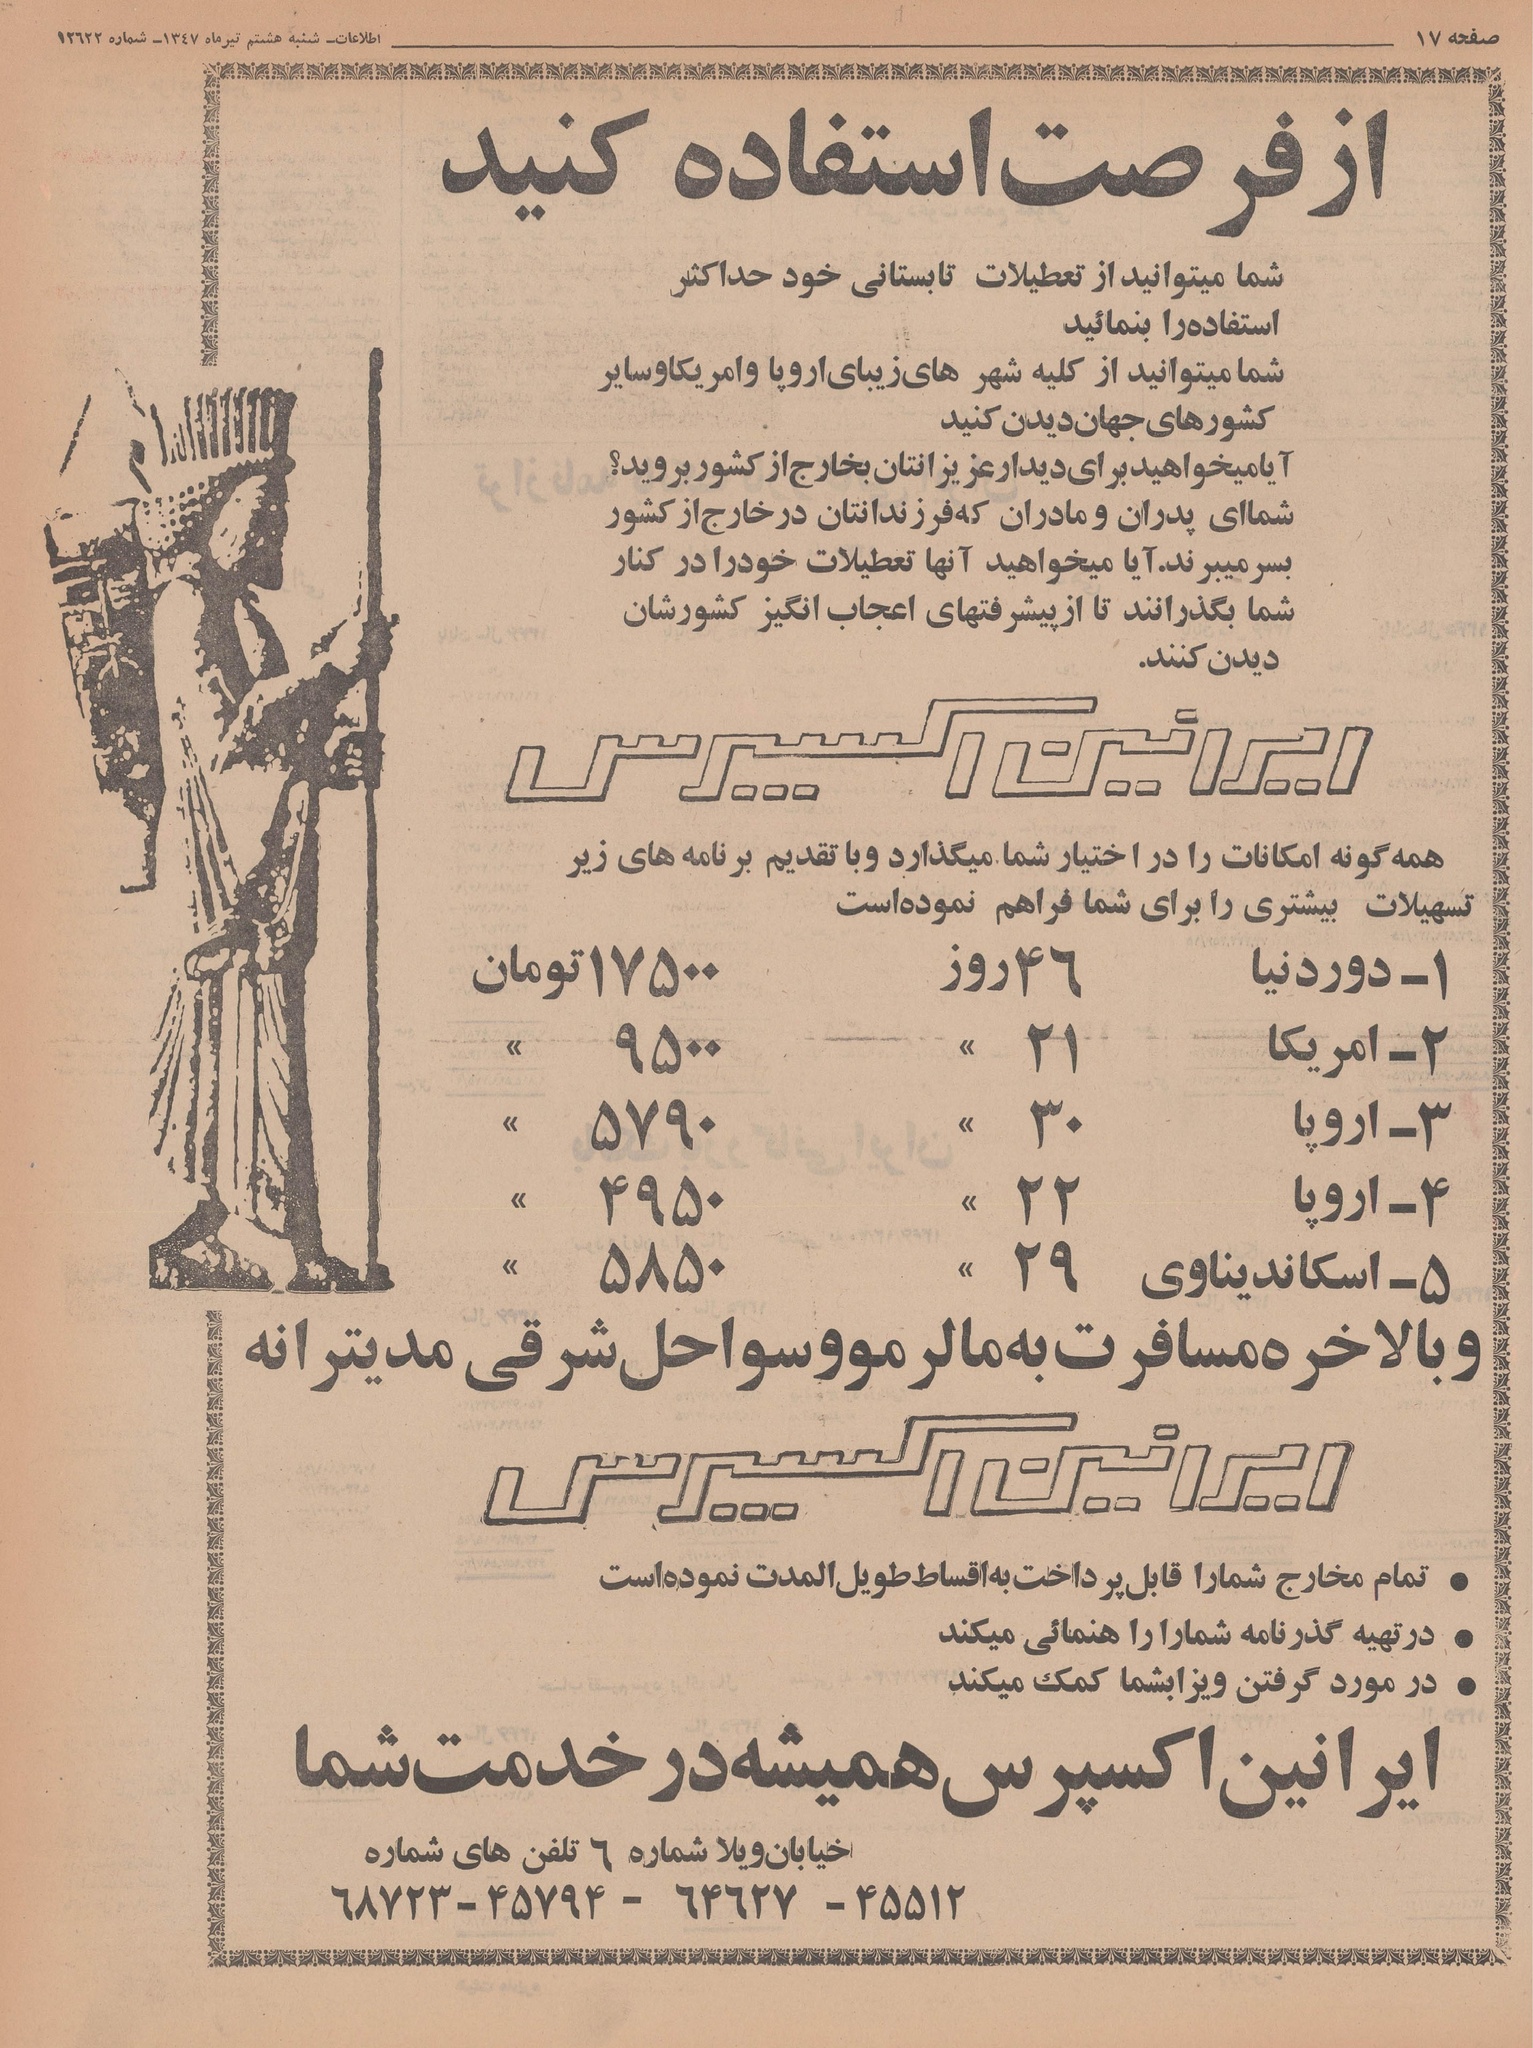 صفحه ۱۷
اطلاعات- شنبه هشتم تیرماه ۱۳٤۷- شماره ۱۲٦۲۲
از فرصت استفاده کنید
شما میتوانید از تعطیلات تابستانی خود حداکثر
استفاده را بنمائید
شما میتوانید از کلیه شهر های زیبای اروپا و امریکا و سایر
کشورهای جهان دیدن کنید
آیا میخواهید برای دیدار عزیزانتان بخارج از کشور بروید؟
شما ای پدران و مادران که فرزندانتان در خارج از کشور
بسر میبرند. آیا میخواهید آنها تعطیلات خود را در کنار
شما بگذرانند تا از پیشرفتهای اعجاب انگیز کشورشان
دیدن کنند.
ایرانین اکسپرس
همه گونه امکانات را در اختیار شما میگذارد و با تقدیم برنامه های زیر
تسهیلات بیشتری را برای شما فراهم نموده است
۱- دور دنیا ۴۶ روز ۱۷۵۰۰ تومان
۲- امریکا ۲۱ » ۹۵۰۰ »
۳- اروپا ۳۰ » ۵۷۹۰ »
۴- اروپا ۲۲ » ۴۹۵۰ »
۵- اسکاندیناوی ۲۹ » ۵۸۵۰ »
و بالاخره مسافرت به مالرمو و سواحل شرقی مدیترانه
ایرانین اکسپرس
● تمام مخارج شما را قابل پرداخت به اقساط طویل المدت نموده است
● در تهیه گذرنامه شما را راهنمائی میکند
● در مورد گرفتن ویزا بشما کمک میکند
ایرانین اکسپرس همیشه در خدمت شما
خیابان ویلا شماره ۶ تلفن های شماره
۴۵۵۱۲ - ۶۴۶۲۷ - ۴۵۷۹۴ - ۶۸۷۲۳